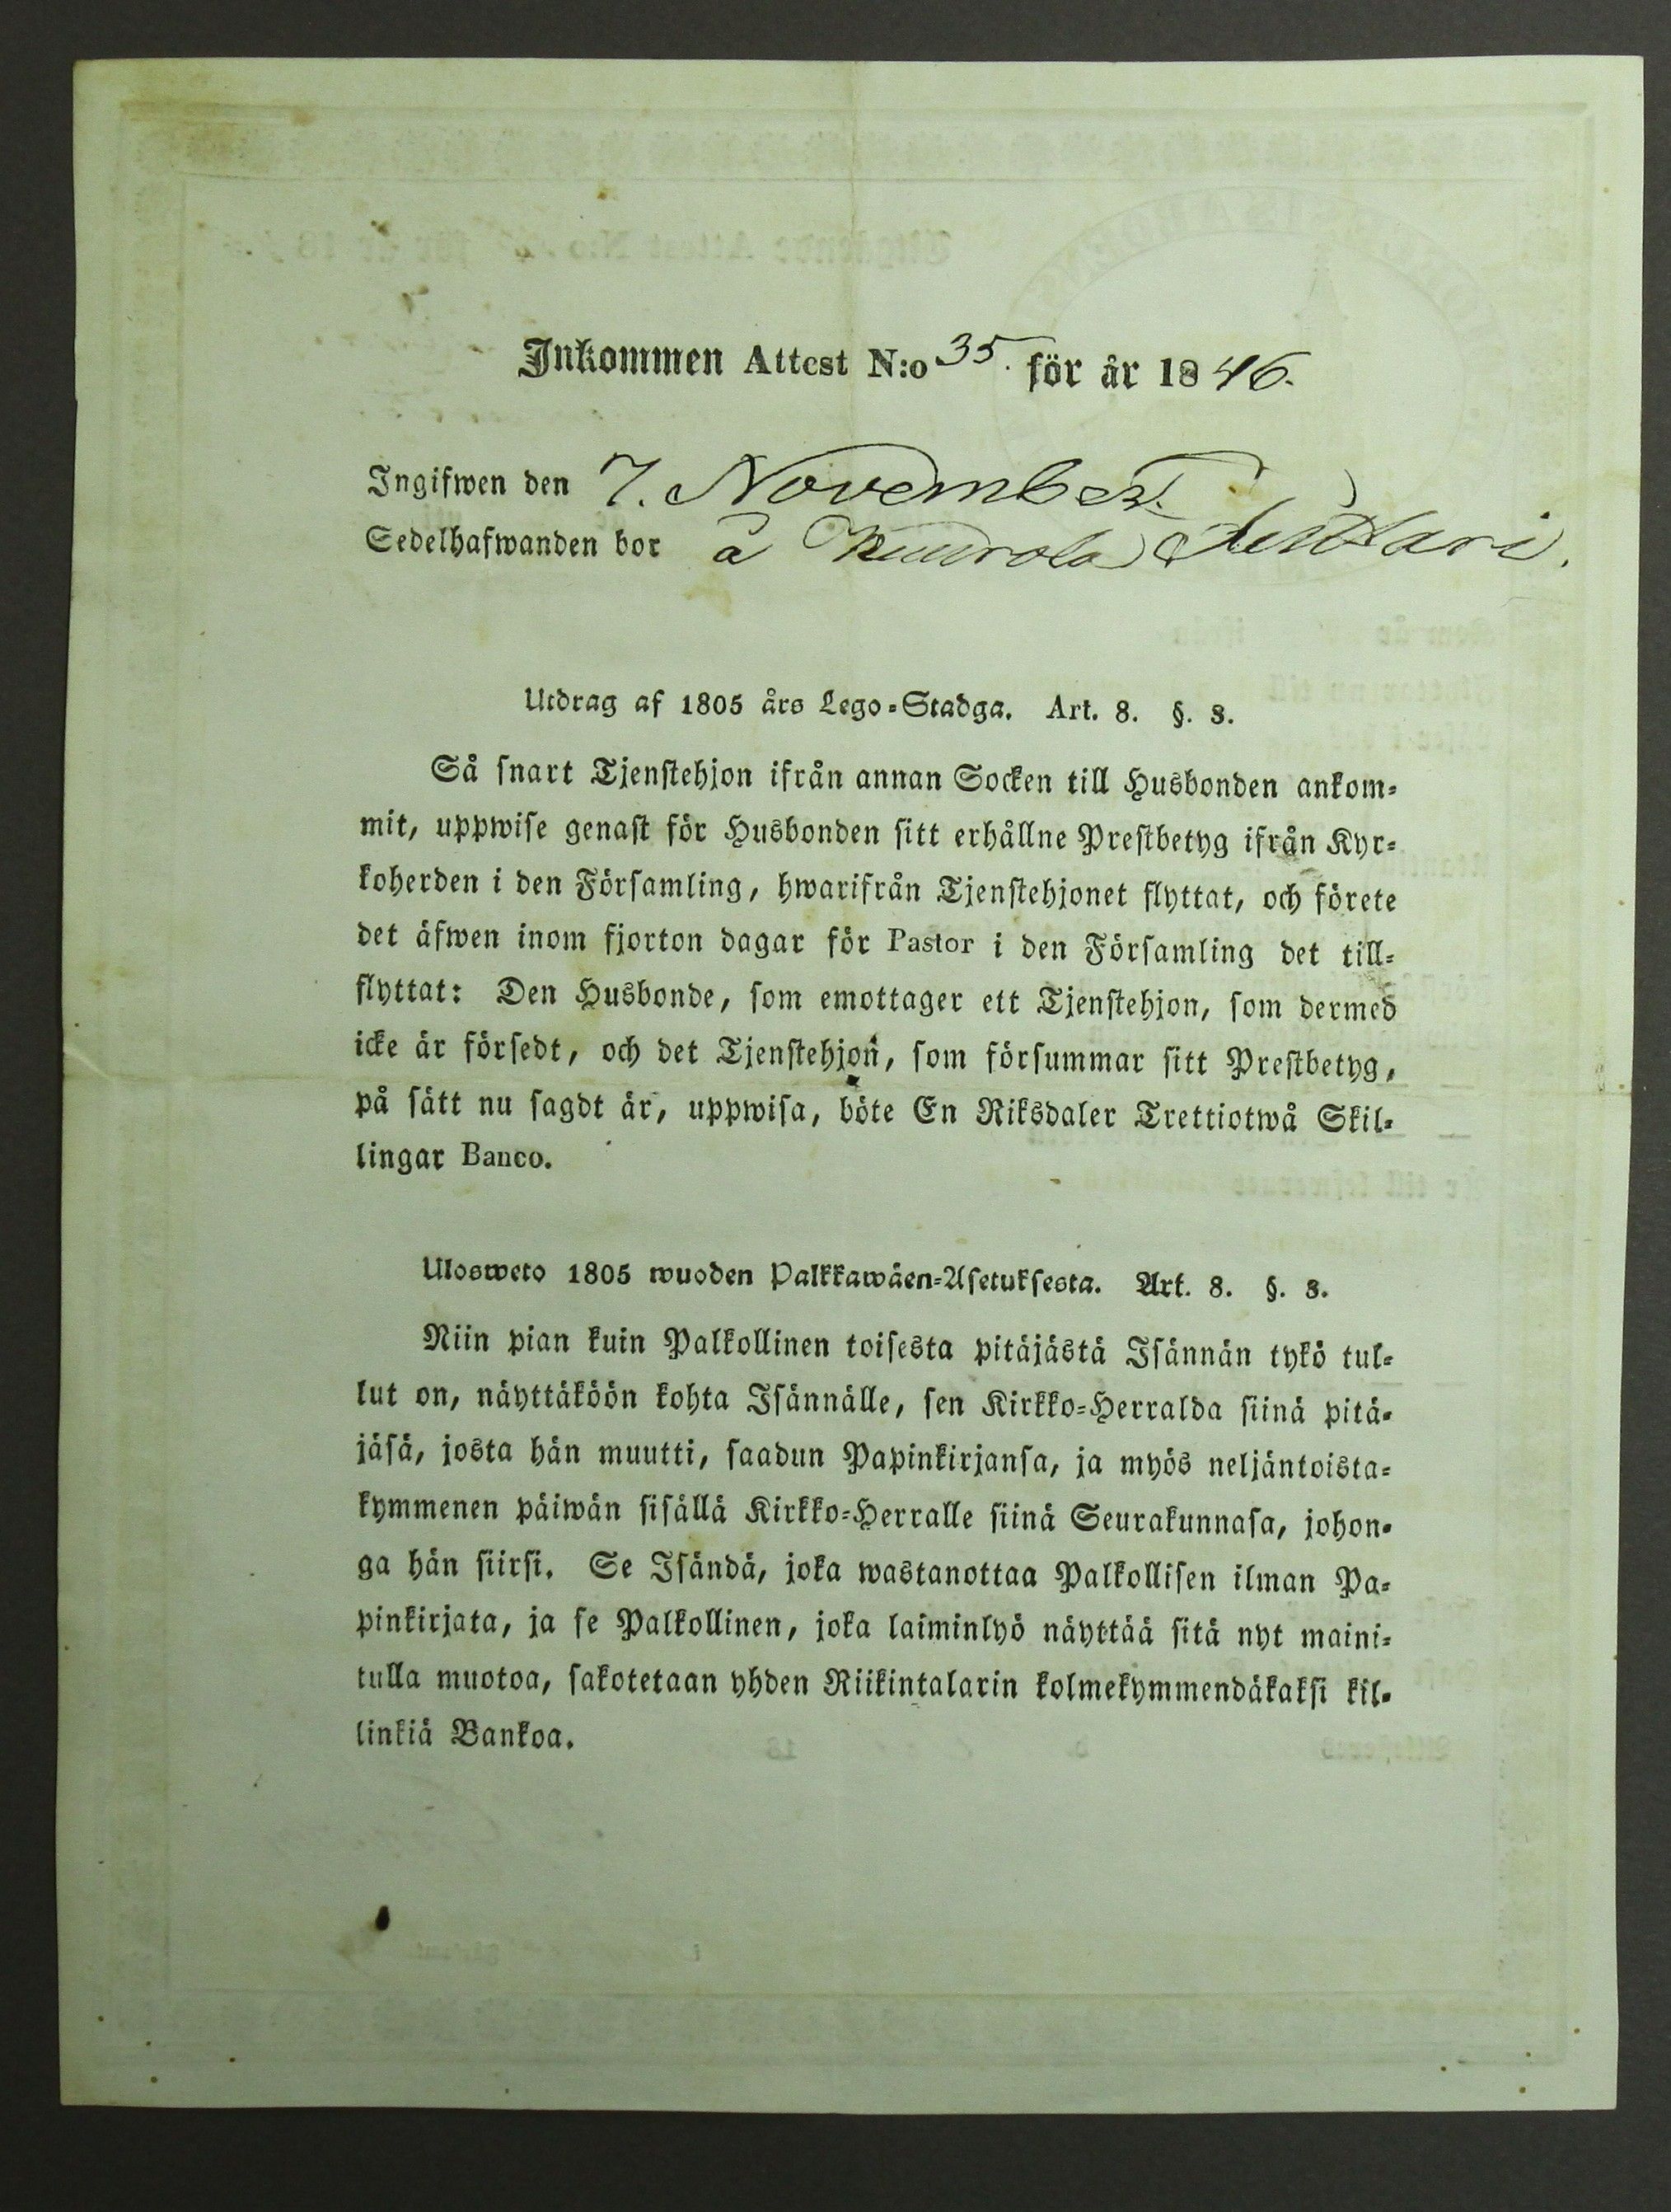 Inkommen Attest N:o 35. för år 1846.
Ingifwen den 7. November.
Sedelhafwanden bor å
Utdrag af 1805 års Lego-Stadga. Art. 8. §. 3.
Så snart Tjenstehjon ifrån annan Socken till Husbonden ankom-
mit, uppwise genast för Husbonden sitt erhållne Prestbetyg ifrån Kyr-
koherden i den Församling, hwarifrån Tjenstehjonet flyttat, och förete
det äfwen inom fjorton dagar för Pastor i den Församling det till-
flyttat: Den Husbonde, som emottager ett Tjenstehjon, som dermed
icke är försedt, och det Tjenstehjon, som försummar sitt Prestbetyg,
på sätt nu sagdt är, uppwisa, böte En Riksdaler Trettiotwå Skil-
lingar Banco.
Ulosweto 1805 wuoden Palkkawäen-Asetuksesta. Art. 8. §. 3.
Niin pian kuin Palkollinen toisesta pitäjästä Isännän tykö tul-
lut on, näyttäköön kohta Isännälle, sen Kirkko-Herralda siinä pitä-
jäsä, josta hän muutti, saadun Papinkirjansa, ja myös neljäntoista-
kymmenen päiwän sisällä Kirkko-Herralle siinä Seurakunnasa, johon-
ga hän siirsi. Se Isändä, joka wastanottaa Palkollisen ilman Pa-
pinkirjata, ja se Palkollinen, joka laiminlyö näyttää sitä nyt maini-
tulla muotoa, sakotetaan yhden Riikintalarin kolmekymmendäkaksi kil-
linkiä Bankoa.